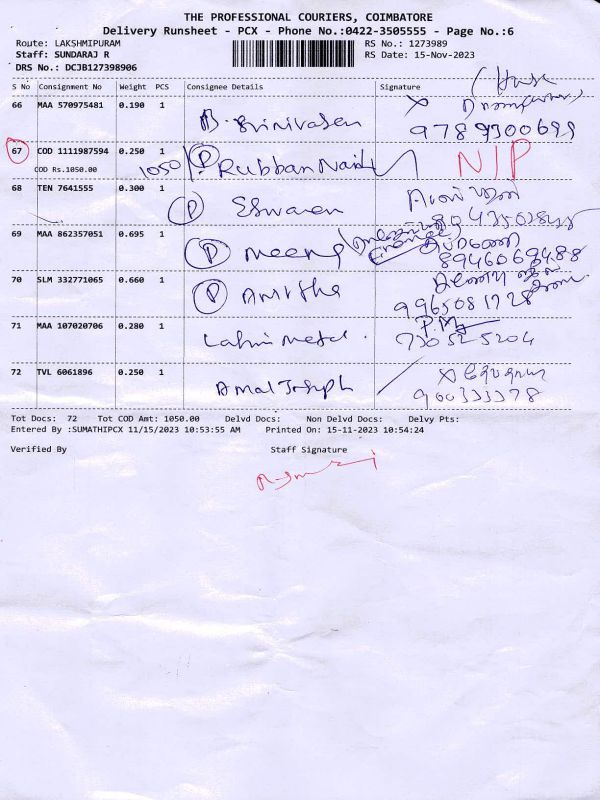 THE PROFESSIONAL COURIERS, COIMBATORE
Delivery Runsheet - PCX - Phone No.:0422-3505555 - Page No.:6
Route: LAKSHMIPURAM
RS No.: 1273989
Staff: SUNDARAJ R
RS Date: 15-Nov-2023
DRS No.: DCJB127398906
S No Consignment No Weight PCS Consignee Details Signature
(House
66 MAA 570975481 0.190 1
B. Srinivasan 9789300699
67 COD 1111987594 0.250 1
COD Rs.1050.00 1050/- P Rubban Naidu NIP
68 TEN 7641555 0.300 1
P Eswaran
69 MAA 862357051 0.695 1
P Meena 8946069488
70 SLM 332771065 0.660 1
P Amirtha 9965081728
71 MAA 107020706 0.280 1
Lakmi metal. 730525204
72 TVL 6061896 0.250 1
Amal Joseph 900333378
Tot Docs: 72 Tot COD Amt: 1050.00 Delvd Docs: Non Delvd Docs: Delvy Pts:
Entered By :SUMATHIPCX 11/15/2023 10:53:55 AM Printed On: 15-11-2023 10:54:24
Verified By Staff Signature